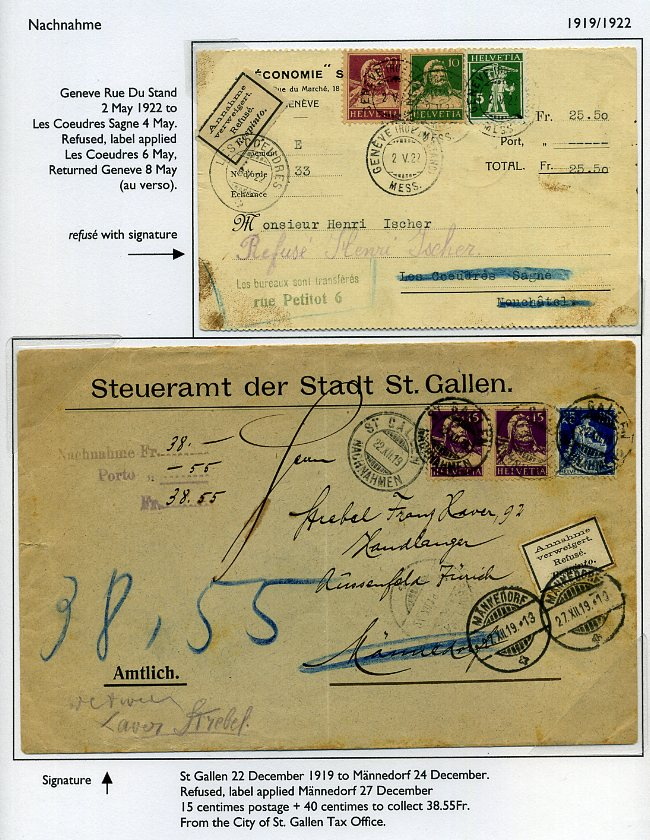 Nachnahme
1919/1922
Geneve Rue Du Stand
2 May 1922 to
Les Coeudres Sagne 4 May.
Refused, label applied
Les Coeudres 6 May,
Returned Geneve 8 May
(au verso).
refusé with signature
ÉCONOMIE" S
ue du Marché, 18
GENÈVE
Annahme
verweigert.
Refusé.
Respinto.
10
HELVETIA
HELVETIA
HELVETIA
5
GENÈVE
2 V. 22
MESS.
LES COEUDRES
Fr. 25.50
Port, " ------
TOTAL. Fr. 25.50
E
N° d'ordre 33
Échéance
Monsieur Henri Ischer
Refusé Henri Ischer.
Les Coeudres Sagne
Neuchâtel.
Les bureaux sont transférés
rue Petitot 6
Steueramt der Stadt St. Gallen.
Nachnahme Fr. 38.-
Porto " -55
Fr. 38.55
ST. GALLEN
22.XII.19
NACHNAHMEN
15
15
HELVETIA
HELVETIA
HELVETIA
Herrn
Strebel Franz Xaver, 92
Handlanger
Aussenfeld Zürich
Männedorf
Annahme
verweigert.
Refusé.
MÄNNEDORF
27.XII.19.-13
MÄNNEDORF
27.XII.19.-13
38,55
Amtlich.
Xaver Strebel.
Signature
St Gallen 22 December 1919 to Männedorf 24 December.
Refused, label applied Männedorf 27 December
15 centimes postage + 40 centimes to collect 38.55Fr.
From the City of St. Gallen Tax Office.